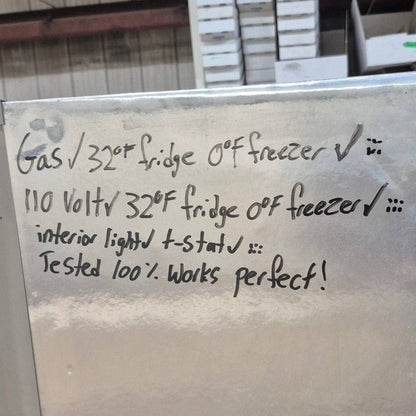 Gas √ 32°F fridge 0°F freezer √ :::
110 Volt √ 32°F fridge 0°F freezer √ :::
interior light √ t-stat √ :::
Tested 100% works perfect!